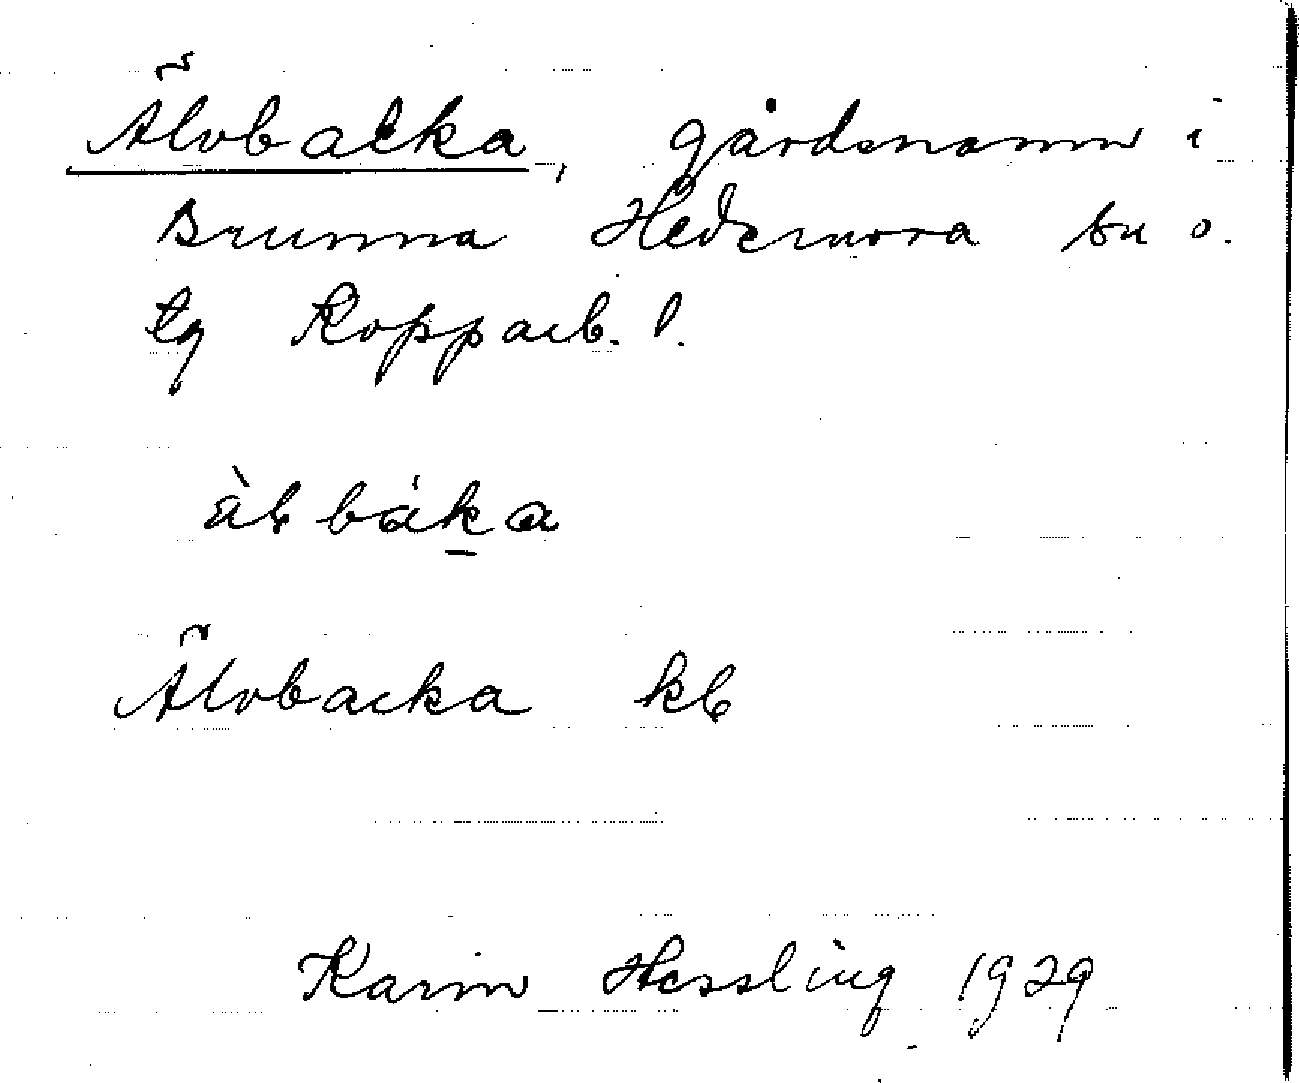 Älvbacka, gårdsnamn i
Brunna Hedemora sn o.
tg Kopparb. l.
àlbáka
Älvbacka kb
Karin Hessling 1929